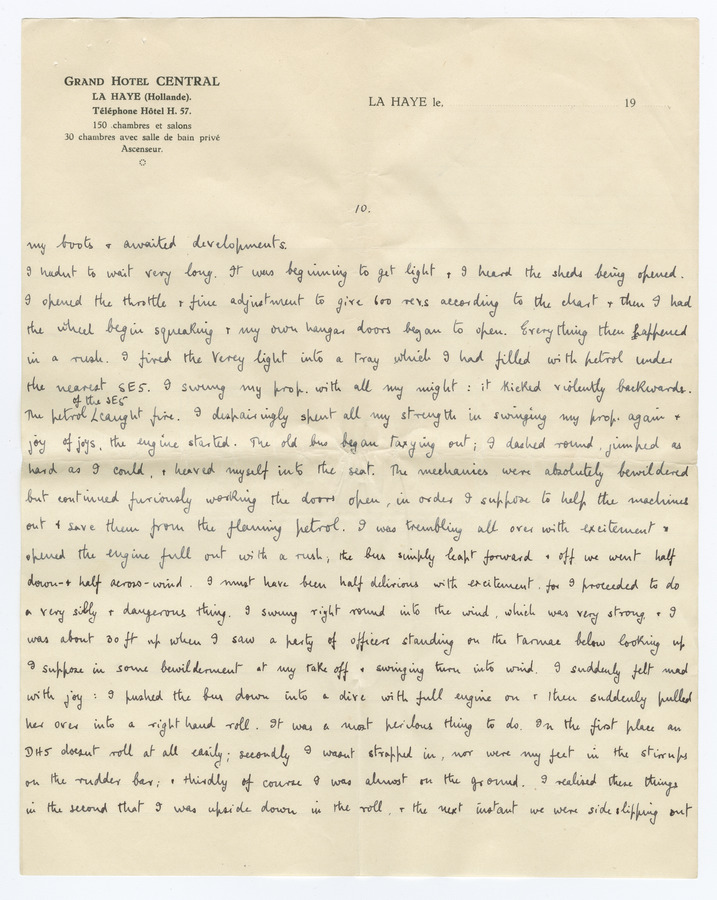 GRAND HOTEL CENTRAL
LA HAYE (Hollande).
Téléphone Hôtel H. 57.
150 chambres et salons
30 chambres avec salle de bain privé
Ascenseur.
LA HAYE le, 19
10.
my boots & awaited developments.
I hadnt to wait very long. It was beginning to get light & I heard the sheds being opened.
I opened the throttle & fine adjustment to give 600 revs according to the chart & then I had
the wheel begin squeaking & my own hangar doors began to open. Everything then happened
in a rush. I fired the Verey light into a tray which I had filled with petrol under
the nearest SE5. I swung my prop. with all my might: it kicked violently backwards.
of the SE5
The petrol caught fire. I despairingly spent all my strength in swinging my prop. again &
joy of joys, the engine started. The old bus began taxying out; I dashed round, jumped as
hard as I could, & heaved myself into the seat. The mechanics were absolutely bewildered
but continued furiously working the doors open, in order I suppose to help the machines
out & save them from the flaming petrol. I was trembling all over with excitement &
opened the engine full out with a rush; the bus simply leapt forward & off we went half
down- & half across-wind. I must have been half delirious with excitement, for I proceeded to do
a very silly & dangerous thing. I swung right round into the wind, which was very strong, & I
was about 30 ft up when I saw a party of officers standing on the tarmac below looking up
I suppose in some bewilderment at my take off & swinging turn into wind. I suddenly felt mad
with joy: I pushed the bus down into a dive with full engine on & then suddenly pulled
her over into a right hand roll. It was a most perilous thing to do. In the first place an
DH5 doesnt roll at all easily; secondly I wasnt strapped in, nor were my feet in the stirrups
on the rudder bar; & thirdly of course I was almost on the ground. I realised these things
in the second that I was upside down in the roll, & the next instant we were side slipping out